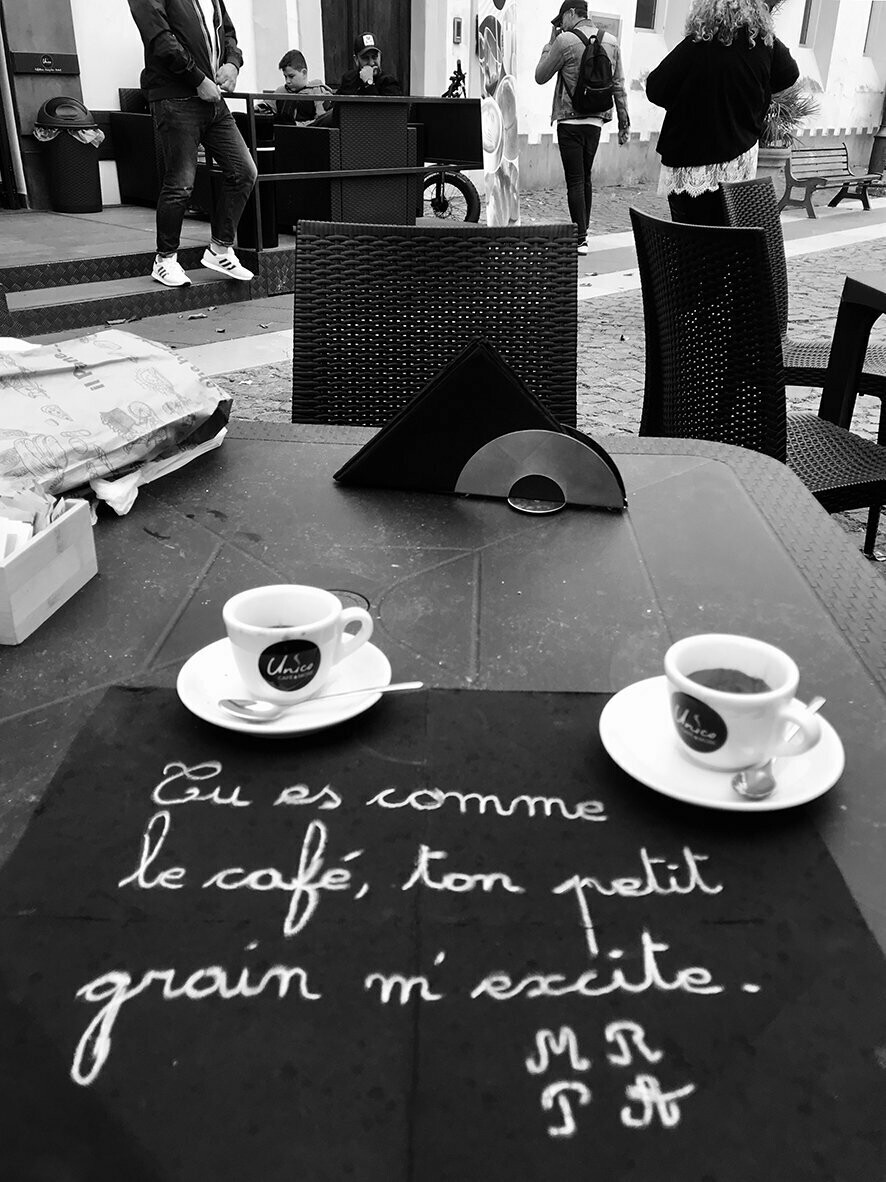 Unico
Unico
Tu es comme
le café, ton petit
grain m'excite.
M R
P A